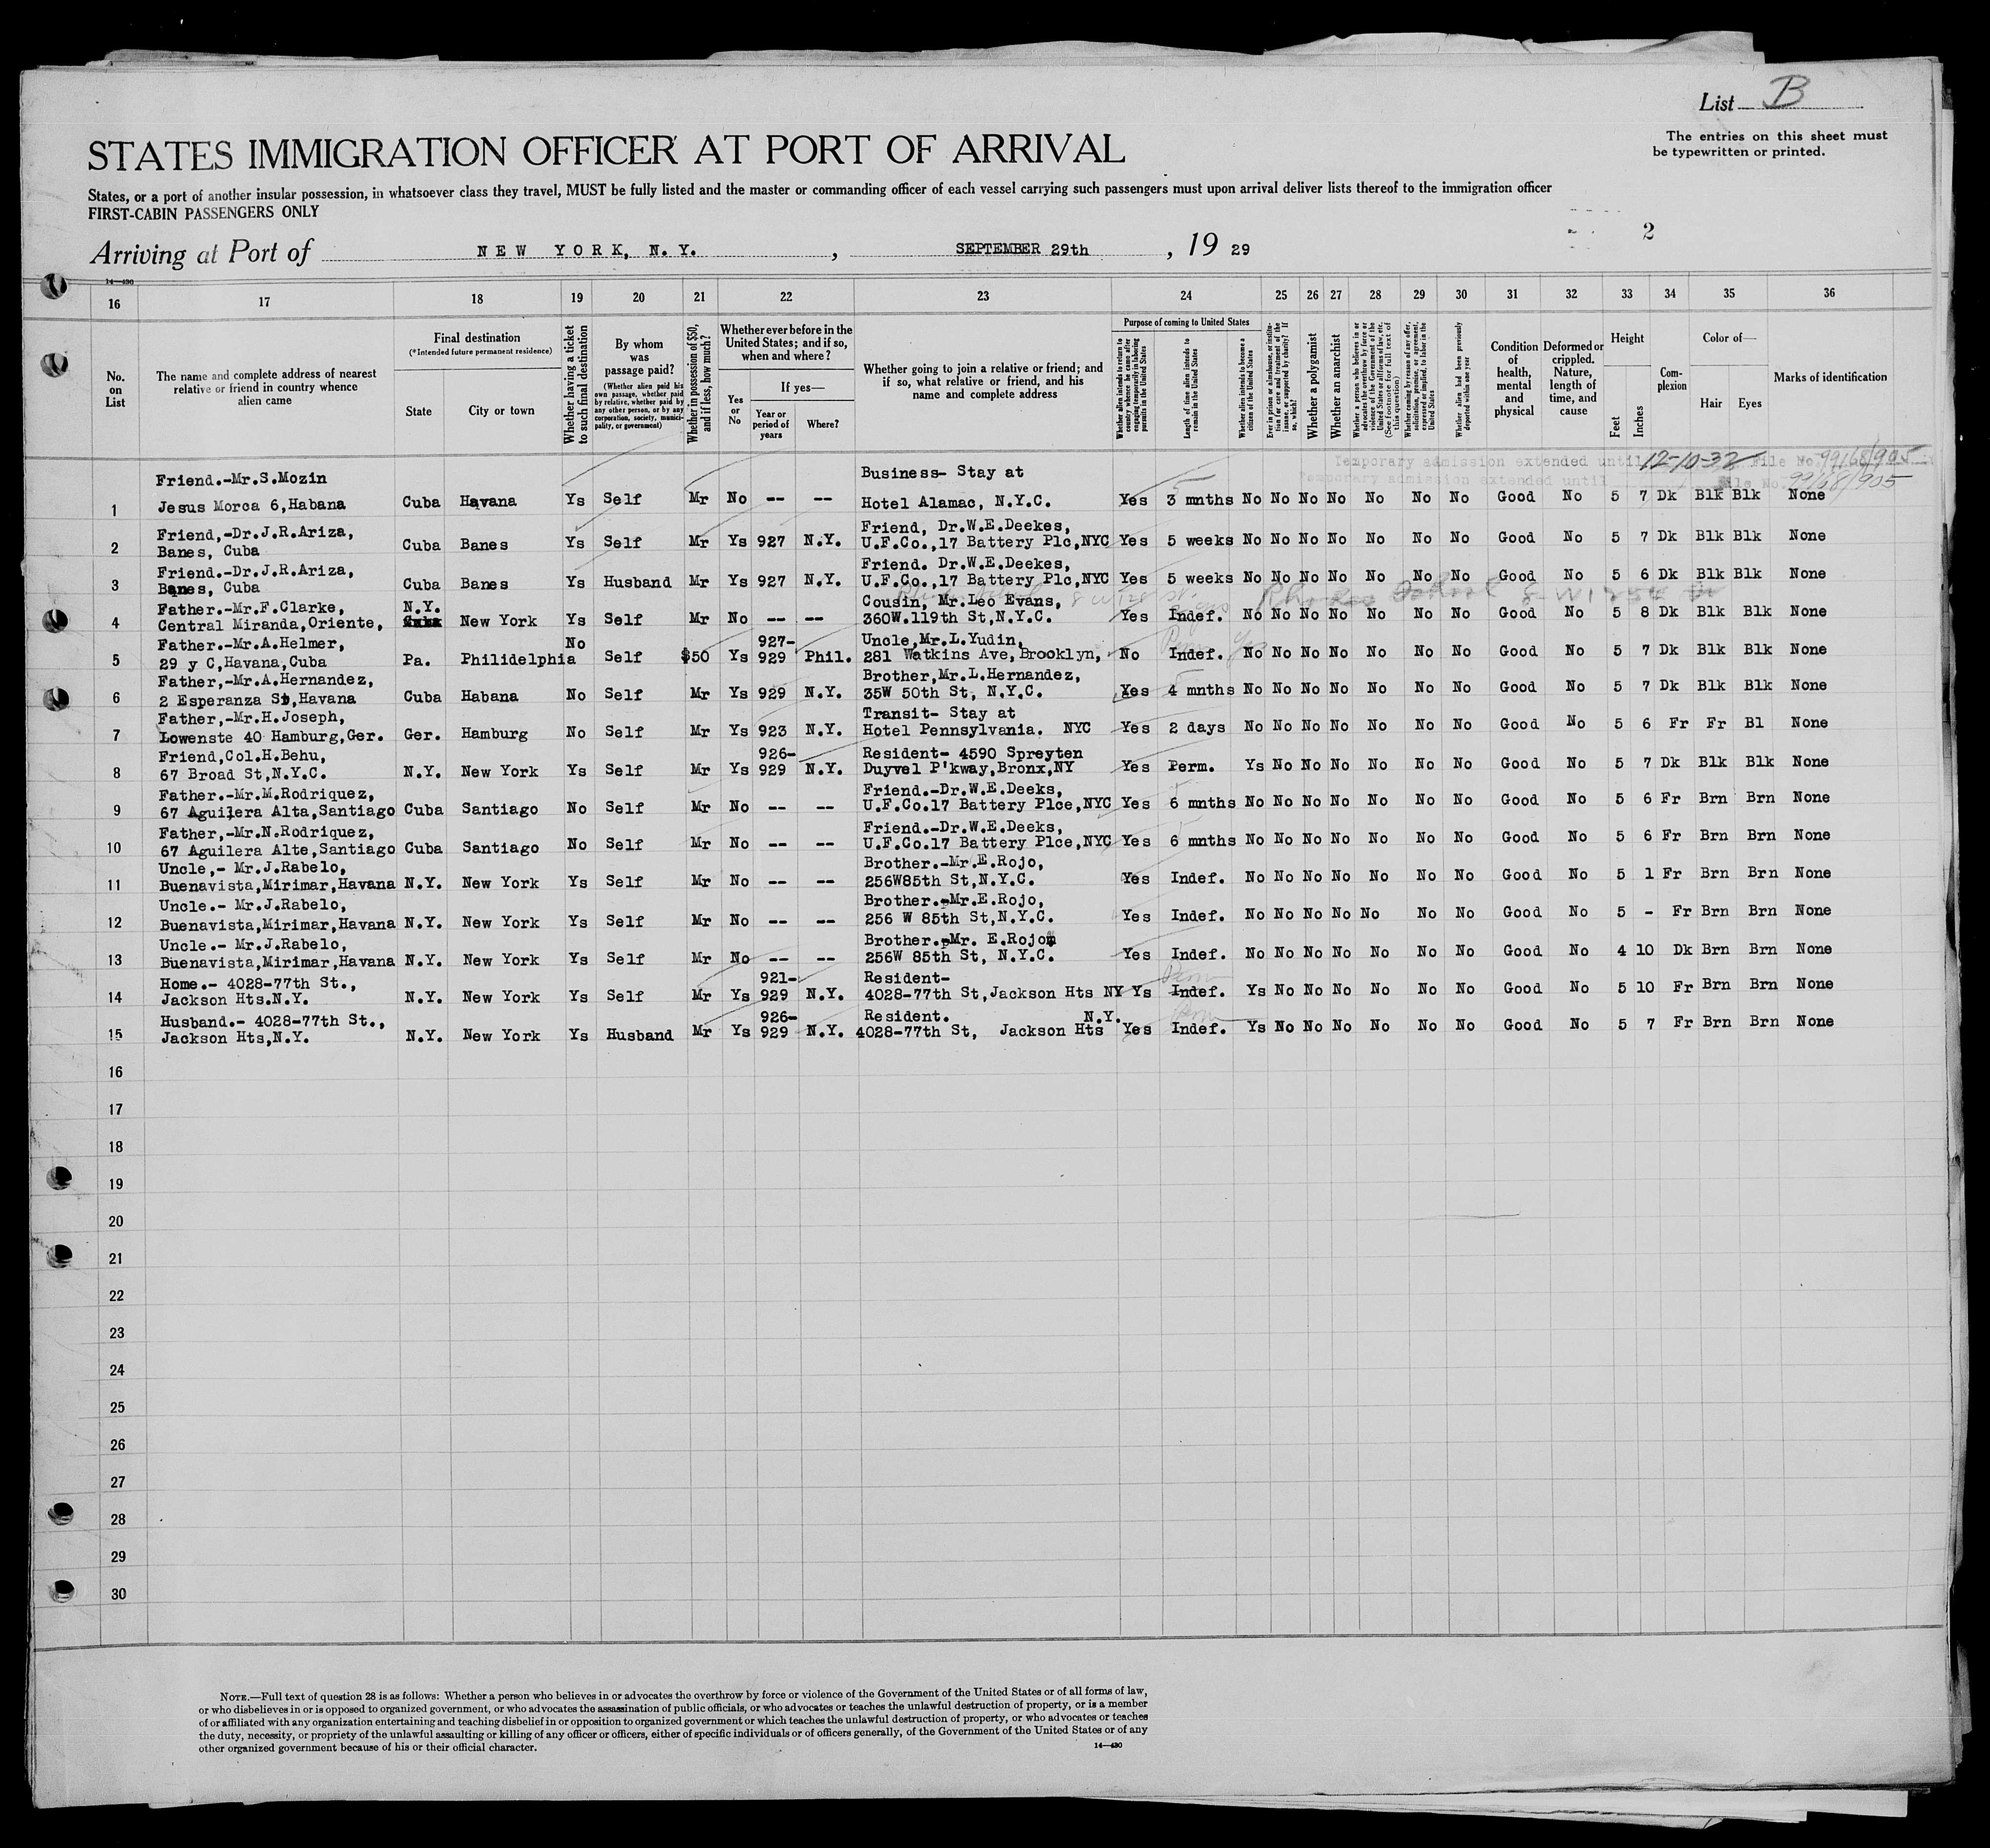 List B
The entries on this sheet must
be typewritten or printed.
STATES IMMIGRATION OFFICER AT PORT OF ARRIVAL
States, or a port of another insular possession, in whatsoever class they travel, MUST be fully listed and the master or commanding officer of each vessel carrying such passengers must upon arrival deliver lists thereof to the immigration officer
FIRST-CABIN PASSENGERS ONLY
2
Arriving at Port of NEW YORK, N. Y. , SEPTEMBER 29th , 19 29
14—430
16 17 18 19 20 21 22 23 24 25 26 27 28 29 30 31 32 33 34 35 36
No. on List
The name and complete address of nearest relative or friend in country whence alien came
Final destination
(*Intended future permanent residence)
State
City or town
Whether having a ticket to such final destination
By whom was passage paid?
(Whether alien paid his own passage, whether paid by relative, whether paid by any other person, or by any corporation, society, municipality, or government)
Whether in possession of $50, and if less, how much?
Whether ever before in the United States; and if so, when and where?
Yes or No
If yes—
Year or period of years
Where?
Whether going to join a relative or friend; and if so, what relative or friend, and his name and complete address
Purpose of coming to United States
Whether alien intends to return to country whence he came after engaging temporarily in laboring pursuits in the United States
Length of time alien intends to remain in the United States
Whether alien intends to become a citizen of the United States
Ever in prison or almshouse, or institution for care and treatment of the insane, or supported by charity? If so, which?
Whether a polygamist
Whether an anarchist
Whether a person who believes in or advocates the overthrow by force or violence of the Government of the United States or all forms of law, etc. (See footnote for full text of this question)
Whether coming by reason of any offer, solicitation, promise, or agreement, expressed or implied, to labor in the United States
Whether alien had been previously deported within one year
Condition of health, mental and physical
Deformed or crippled. Nature, length of time, and cause
Height
Feet
Inches
Complexion
Color of—
Hair
Eyes
Marks of identification
Temporary admission extended until 12-10-32 File No. 99168/905
Temporary admission extended until File No. 99168/905
Friend.-Mr.S.Mozin Business- Stay at
1 Jesus Morca 6,Habana Cuba Havana Ys Self Mr No -- -- Hotel Alamac, N.Y.C. Yes 3 mnths No No No No No No No Good No 5 7 Dk Blk Blk None
Friend,-Dr.J.R.Ariza, Friend, Dr.W.E.Deekes,
2 Banes, Cuba Cuba Banes Ys Self Mr Ys 927 N.Y. U.F.Co.,17 Battery Plc,NYC Yes 5 weeks No No No No No No No Good No 5 7 Dk Blk Blk None
Friend.-Dr.J.R.Ariza, Friend. Dr.W.E.Deekes,
3 Banes, Cuba Cuba Banes Ys Husband Mr Ys 927 N.Y. U.F.Co.,17 Battery Plc,NYC Yes 5 weeks No No No No No No No Good No 5 6 Dk Blk Blk None
Father.-Mr.F.Clarke, N.Y. Cousin, Mr.Leo Evans,
4 Central Miranda,Oriente, Cuba New York Ys Self Mr No -- -- 360W.119th St,N.Y.C. Yes Indef. No No No No No No No Good No 5 8 Dk Blk Blk None
Father.-Mr.A.Helmer, No 927- Uncle,Mr.L.Yudin,
5 29 y C,Havana,Cuba Pa. Philidelphia Self $50 Ys 929 Phil. 281 Watkins Ave,Brooklyn, No Indef. No No No No No No No Good No 5 7 Dk Blk Blk None
Father,-Mr.A.Hernandez, Brother,Mr.L.Hernandez,
6 2 Esperanza St,Havana Cuba Habana No Self Mr Ys 929 N.Y. 35W 50th St, N.Y.C. Yes 4 mnths No No No No No No No Good No 5 7 Dk Blk Blk None
Father,-Mr.H.Joseph, Transit- Stay at
7 Lowenste 40 Hamburg,Ger. Ger. Hamburg No Self Mr Ys 923 N.Y. Hotel Pennsylvania. NYC Yes 2 days No No No No No No No Good No 5 6 Fr Fr Bl None
Friend,Col.H.Behu, 926- Resident- 4590 Spreyten
8 67 Broad St,N.Y.C. N.Y. New York Ys Self Mr Ys 929 N.Y. Duyvel P'kway,Bronx,NY Yes Perm. Ys No No No No No No Good No 5 7 Dk Blk Blk None
Father.-Mr.M.Rodriquez, Friend.-Dr.W.E.Deeks,
9 67 Aguilera Alta,Santiago Cuba Santiago No Self Mr No -- -- U.F.Co.17 Battery Plce,NYC Yes 6 mnths No No No No No No No Good No 5 6 Fr Brn Brn None
Father,-Mr.N.Rodriquez, Friend.-Dr.W.E.Deeks,
10 67 Aguilera Alte,Santiago Cuba Santiago No Self Mr No -- -- U.F.Co.17 Battery Plce,NYC Yes 6 mnths No No No No No No No Good No 5 6 Fr Brn Brn None
Uncle,- Mr.J.Rabelo, Brother.-Mr.E.Rojo,
11 Buenavista,Mirimar,Havana N.Y. New York Ys Self Mr No -- -- 256W85th St,N.Y.C. Yes Indef. No No No No No No No Good No 5 1 Fr Brn Brn None
Uncle.- Mr.J.Rabelo, Brother.-Mr.E.Rojo,
12 Buenavista,Mirimar,Havana N.Y. New York Ys Self Mr No -- -- 256 W 85th St,N.Y.C. Yes Indef. No No No No No No No Good No 5 - Fr Brn Brn None
Uncle.- Mr.J.Rabelo, Brother.-Mr. E.Rojo
13 Buenavista,Mirimar,Havana N.Y. New York Ys Self Mr No -- -- 256W 85th St, N.Y.C. Yes Indef. No No No No No No No Good No 4 10 Dk Brn Brn None
Home.- 4028-77th St., 921- Resident- Perm
14 Jackson Hts.N.Y. N.Y. New York Ys Self Mr Ys 929 N.Y. 4028-77th St,Jackson Hts NY Ys Indef. Ys No No No No No No Good No 5 10 Fr Brn Brn None
Husband.- 4028-77th St., 926- Resident. N.Y. Perm
15 Jackson Hts,N.Y. N.Y. New York Ys Husband Mr Ys 929 N.Y. 4028-77th St, Jackson Hts Yes Indef. Ys No No No No No No Good No 5 7 Fr Brn Brn None
16
17
18
19
20
21
22
23
24
25
26
27
28
29
30
NOTE.—Full text of question 28 is as follows: Whether a person who believes in or advocates the overthrow by force or violence of the Government of the United States or of all forms of law,
or who disbelieves in or is opposed to organized government, or who advocates the assassination of public officials, or who advocates or teaches the unlawful destruction of property, or is a member
of or affiliated with any organization entertaining and teaching disbelief in or opposition to organized government or which teaches the unlawful destruction of property, or who advocates or teaches
the duty, necessity, or propriety of the unlawful assaulting or killing of any officer or officers, either of specific individuals or of officers generally, of the Government of the United States or of any
other organized government because of his or their official character.
14—430